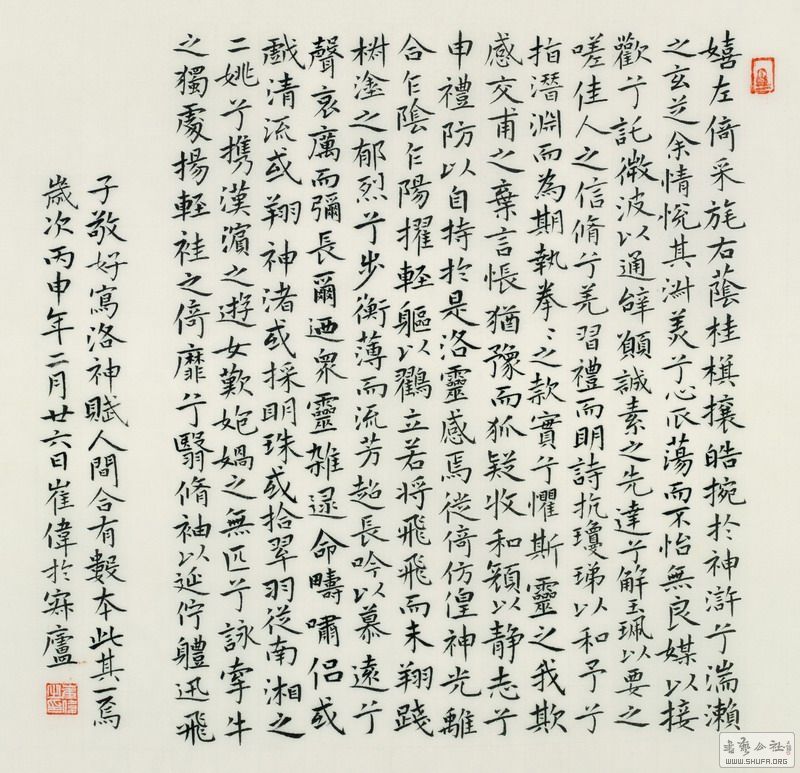 嬉左倚采旄右蔭桂棋攘皓捥於神滸兮湍瀨
之玄芝余情悅其淑美兮心辰蕩而不怡無良媒以接
歡兮託微波以通辭願誠素之先達兮解玉珮以要之
嗟佳人之信脩兮羌習禮而明詩抗瓊珶以和予兮
指潛淵而為期執拳〻之款實兮懼斯靈之我欺
感交甫之棄言悵猶豫而狐疑收和顏以静志兮
申禮防以自持於是洛靈感焉從倚仿偟神光離
合乍陰乍陽擢輕軀以鸖立若将飛飛而未翔踐
椒塗之郁烈兮步衡薄而流芳超長吟以慕遠兮
聲哀厲而彌長爾迺衆靈雜遝命疇嘯侶或
戲清流或翔神渚或採明珠或拾翠羽從南湘之
二姚兮携漢濱之遊女歎匏媧之無匹兮詠牽牛
之獨處揚輕袿之倚靡兮翳脩袖以延佇體迅飛
子敬好寫洛神賦人間合有數本此其一焉
歲次丙申年二月廿六日崔偉於寐廬
書藝公社
WWW.SHUFA.ORG